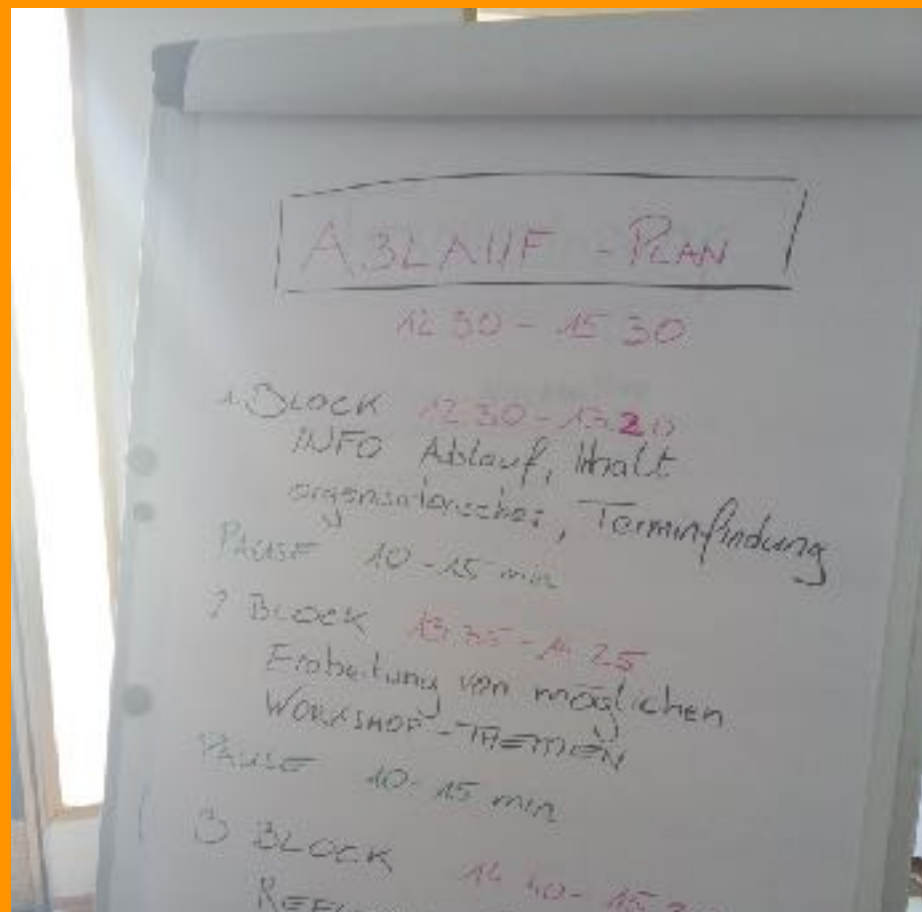 ABLAUF - PLAN
12 30 - 15 30
1. BLOCK 12 30 - 13 20
INFO Ablauf, Inhalt
organisatorisches, Terminfindung
PAUSE 10 - 15 min
2 BLOCK 13 35 - 14 25
Erarbeitung von möglichen
WORKSHOP - THEMEN
PAUSE 10 - 15 min
3 BLOCK 14 40 - 15